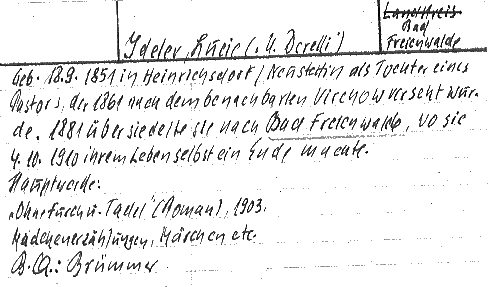 Landkreis
Bad
Freienwalde
Ideler, Lucie (u. Derelli)
Geb. 18.9. 1851 in Heinrichsdorf / Neustettin als Tochter eines
Pastors, der 1861 nach dem benachbarten Virchow versetzt wur-
de. 1881 übersiedelte sie nach Bad Freienwalde, wo sie
4. 10. 1910 ihrem Leben selbst ein Ende machte.
Hauptwerke:
„Ohne Furcht u. Tadel" (Roman), 1903.
Mädchenerzählungen, Märchen etc.
B.Qu.: Brümmer